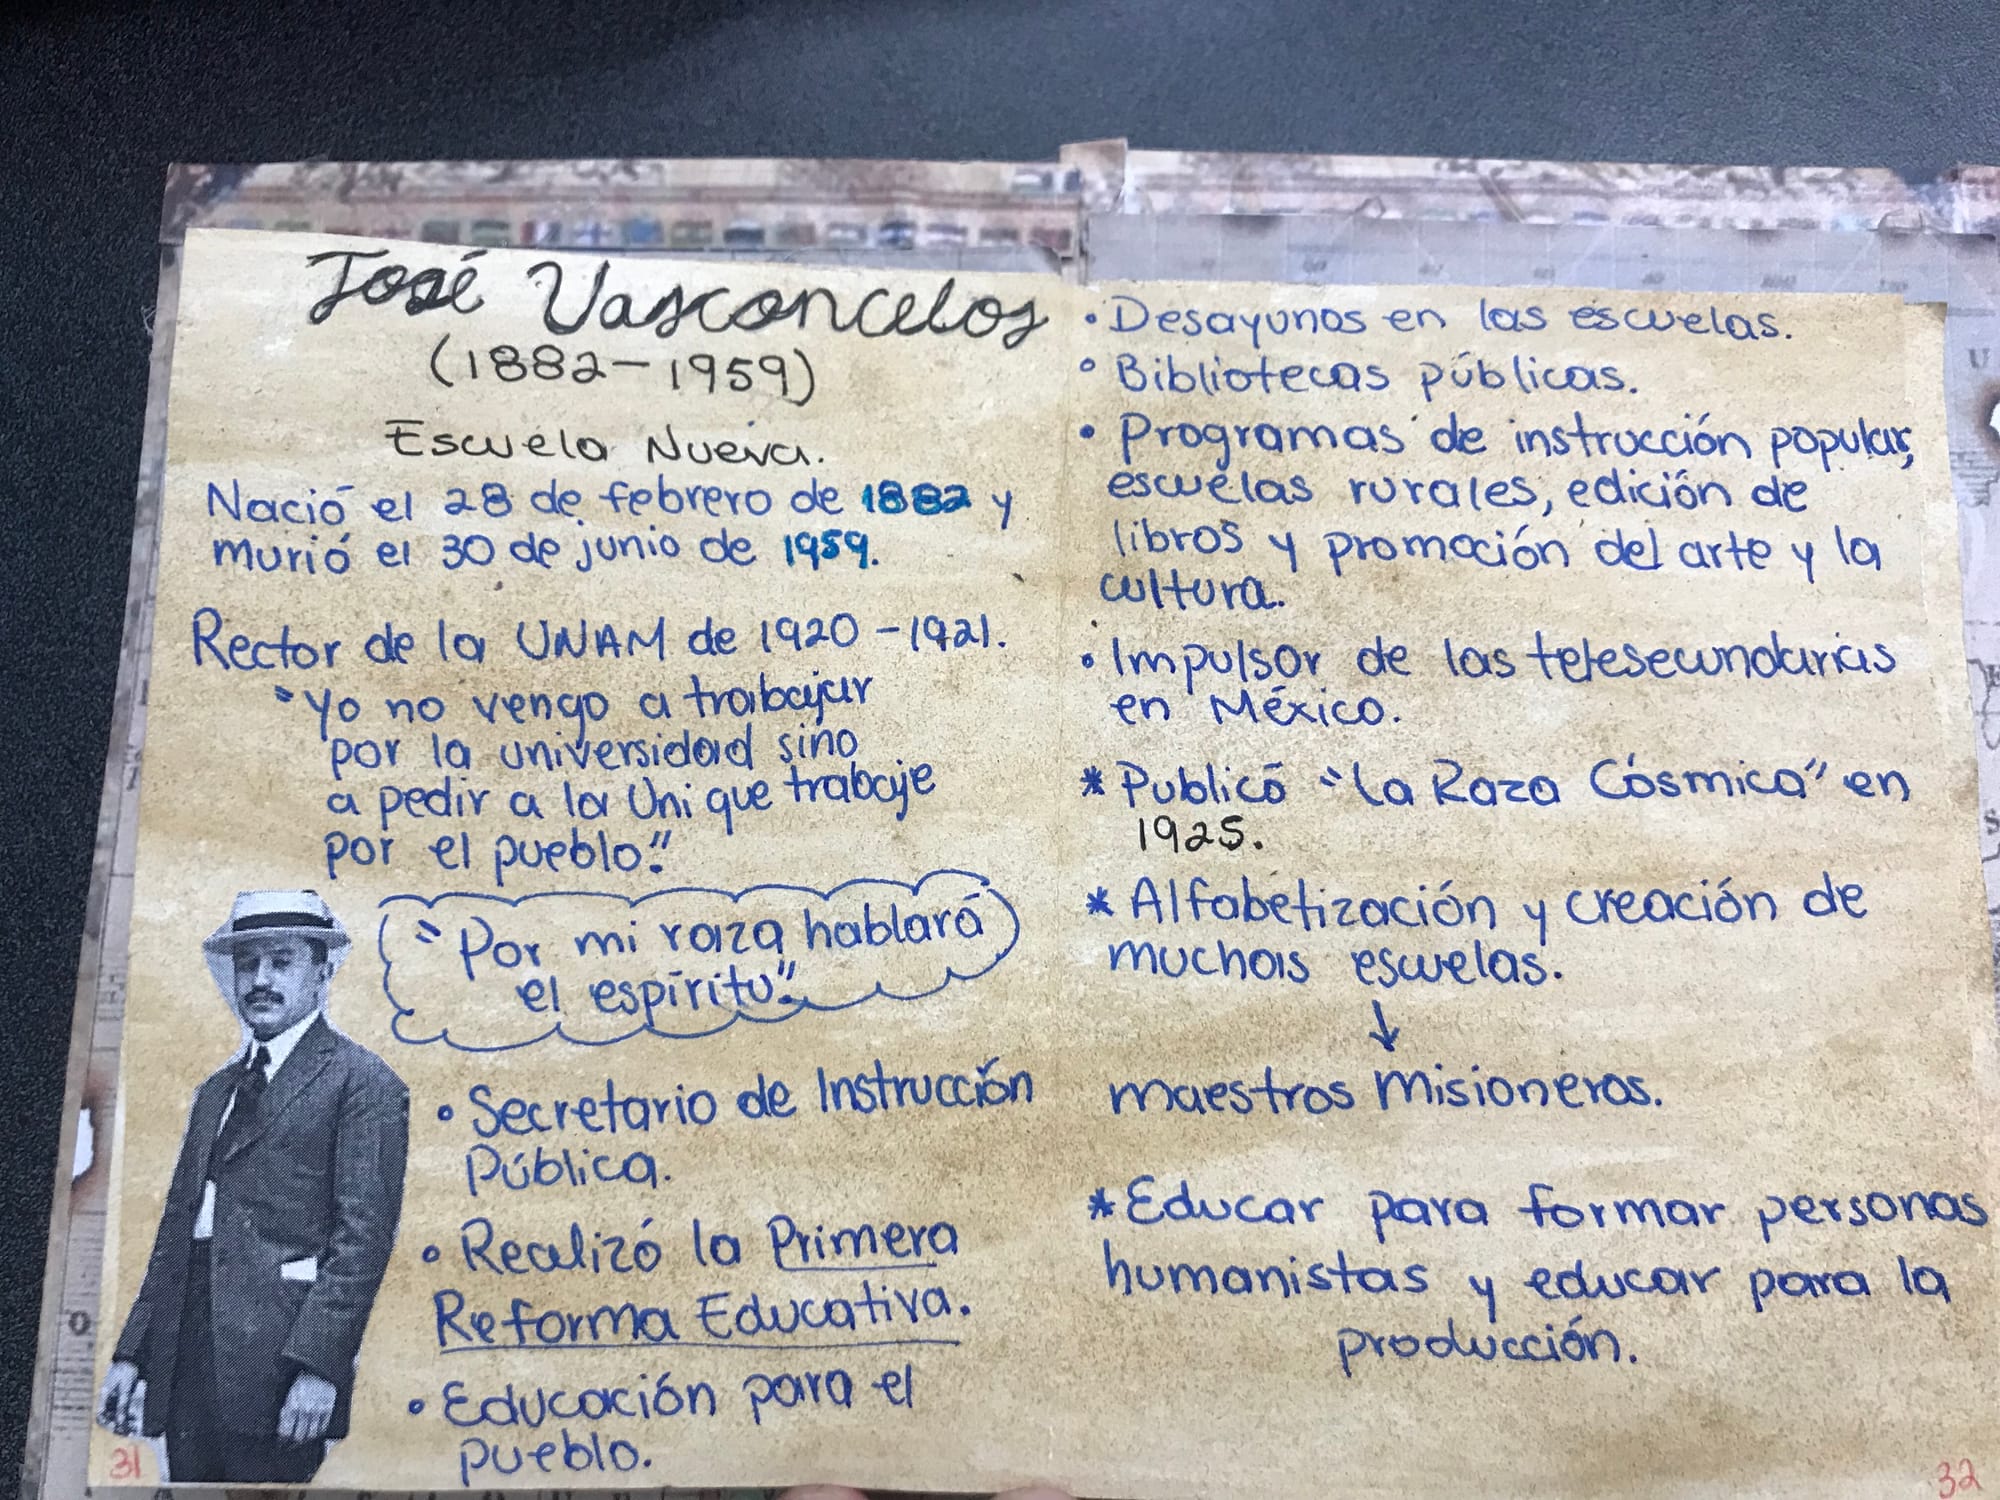 José Vasconcelos
(1882-1959)
Escuela Nueva.
Nació el 28 de febrero de 1882 y
murió el 30 de junio de 1959.
Rector de la UNAM de 1920-1921.
"Yo no vengo a trabajar
por la universidad sino
a pedir a la Uni que trabaje
por el pueblo."
"Por mi raza hablará
el espíritu".
• Secretario de Instrucción
Pública.
• Realizó la Primera
Reforma Educativa.
• Educación para el
pueblo.
31
• Desayunos en las escuelas.
• Bibliotecas públicas.
• Programas de instrucción popular,
escuelas rurales, edición de
libros y promoción del arte y la
cultura.
• Impulsor de las telesecundarias
en México.
* Publicó "La Raza Cósmica" en
1925.
* Alfabetización y creación de
muchas escuelas.
↓
maestros misioneros.
* Educar para formar personas
humanistas y educar para la
producción.
32